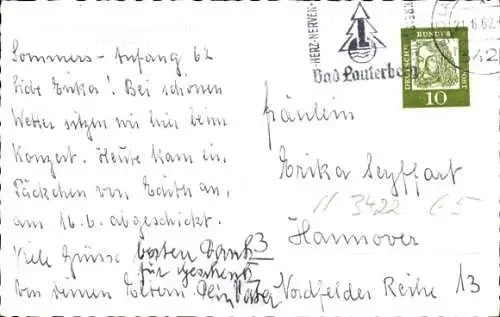 Sommers-Anfang 62
Liebe Erika! Bei schönem
Wetter sitzen wir hier beim
Konzert. Heute kam ein
Päckchen von Edith an,
am 16.6. abgeschickt.
Viele Grüsse besten Dank
für Geschenk
von deinen Eltern. Dein Vater
HERZ-NERVEN-
Bad Lauterberg
21.6.62
342
DEUTSCHE BUNDESPOST
10
Fräulein
Erika Seyffart
H 3422 65
3
Hannover
Nordfelder Reihe 13